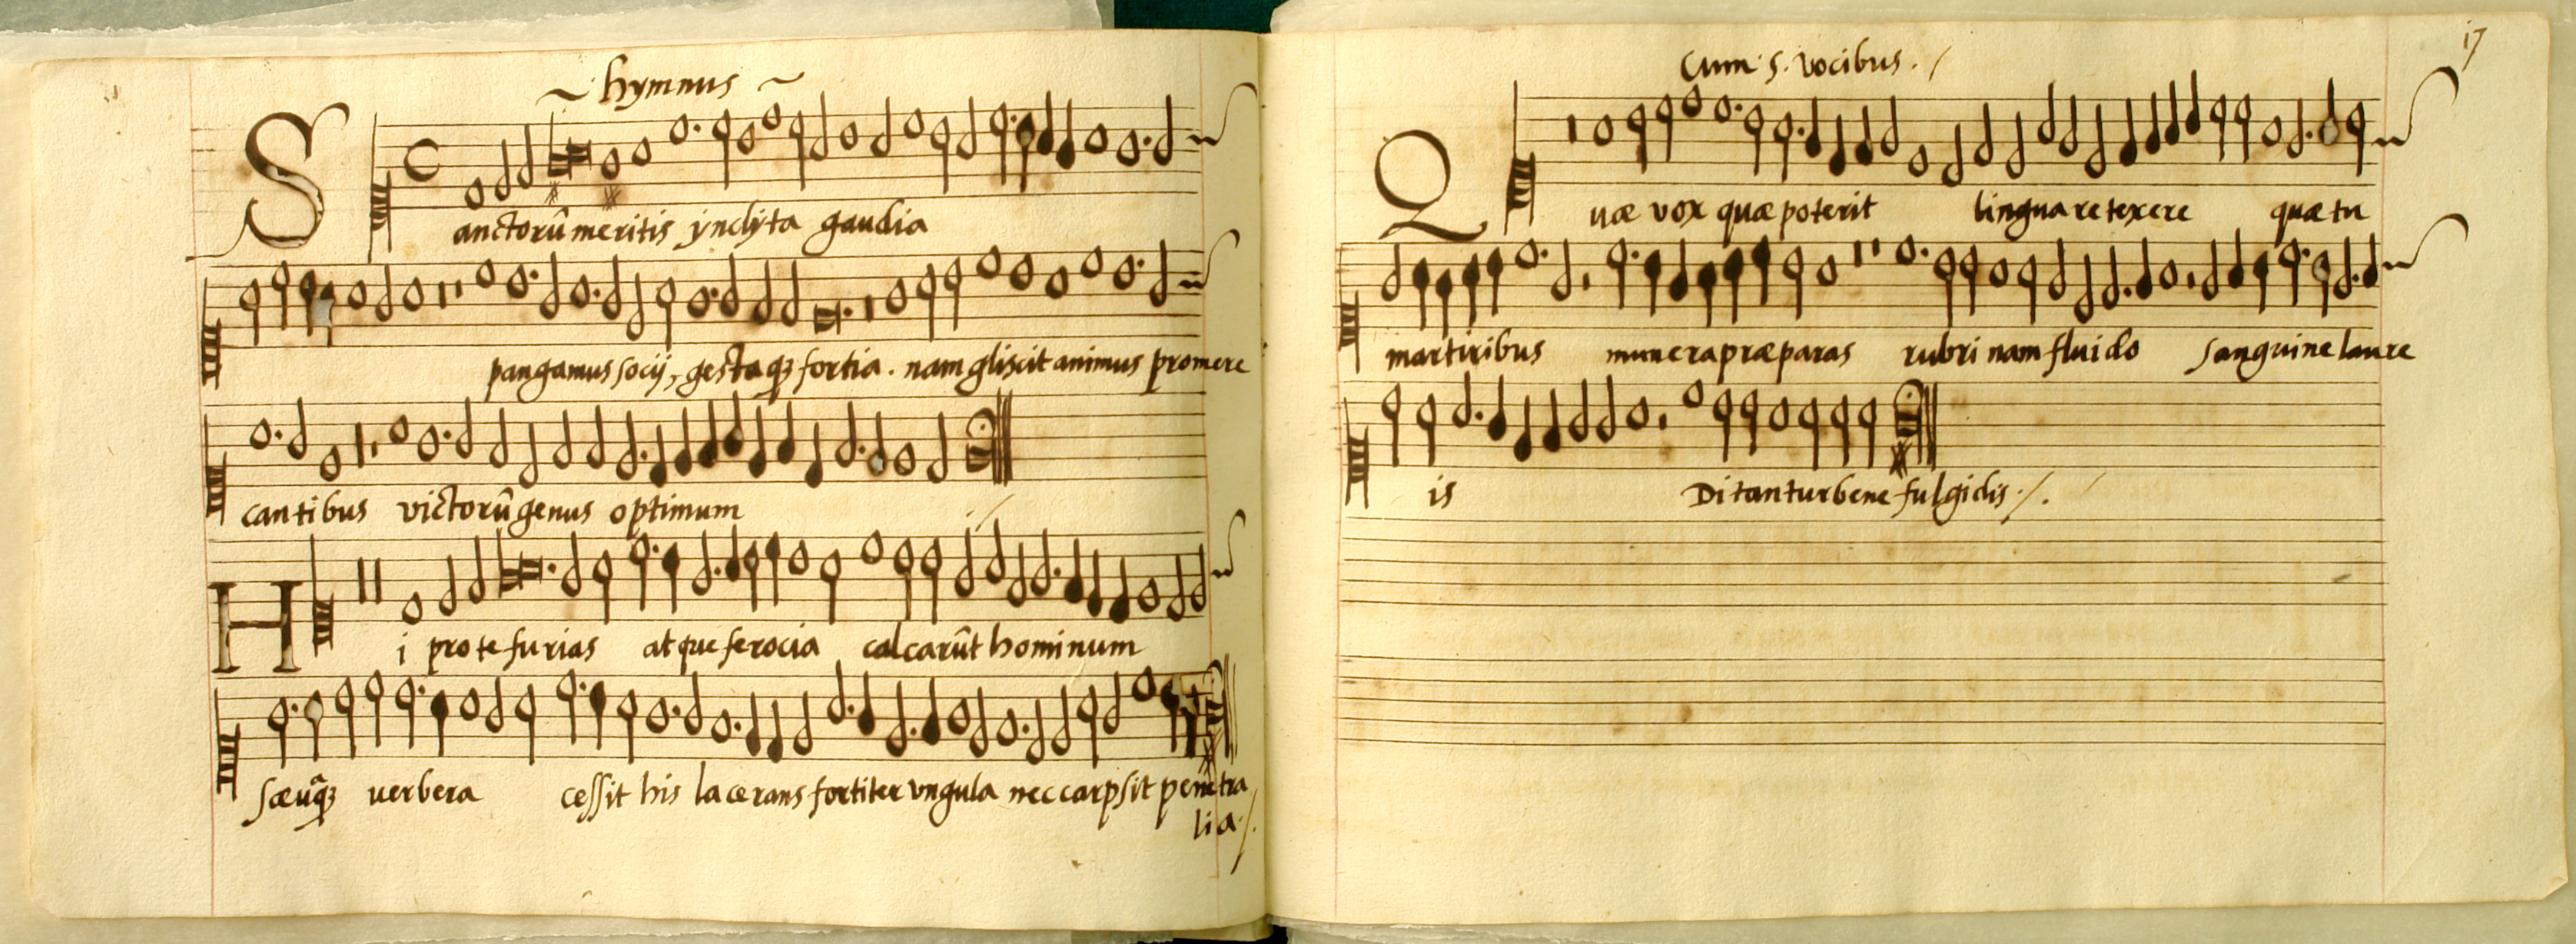 ~ hymnus ~
Sanctorū meritis ynclyta gaudia
pangamus socij, gestaqȝ fortia. nam gliscit animus promere
cantibus victorū genus optimum
Hi pro te furias atque ferocia calcarūt hominum
sæuāqȝ uerbera cessit his lacerans fortiter vngula nec carpsit penetra
lia./.
17
Cum 5. vocibus./
Quæ vox quæ poterit lingua retexere quæ tu
martiribus munera præparas rubri nam fluido sanguine laure
is Ditantur bene fulgidis./.